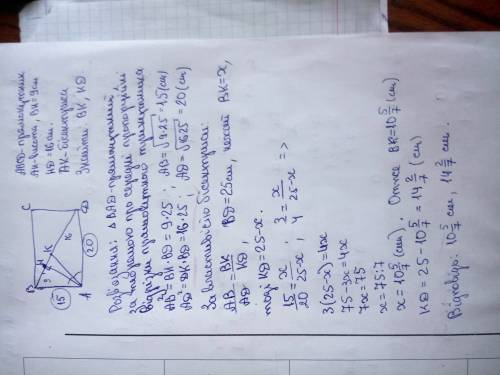 ABCD - прямокутник
AH - висота, BH = 9 см
HD = 16 см.
AK - бісектриса
Знайти BK, KD
B
C
A
D
H
K
9
16
15
20
Розв'язання: ΔBAD - прямокутний
за теоремою про середні пропорційні
відрізки прямокутного трикутника
AB² = BH·BD = 9·25; AB = √9·25 = 15 (см)
AD² = DH·BD = 16·25; AD = √16·25 = 20 (см)
За властивістю бісектриси:
AB/AD = BK/KD, BD = 25 см, нехай BK = x,
тоді KD = 25 - x.
15/20 = x/25-x; 3/4 = x/25-x =>
3(25-x) = 4x
75 - 3x = 4x
7x = 75
x = 75:7
x = 10 5/7 (см). Отже BK = 10 5/7 (см)
KD = 25 - 10 5/7 = 14 2/7 (см)
Відповідь: 10 5/7 см, 14 2/7 см.